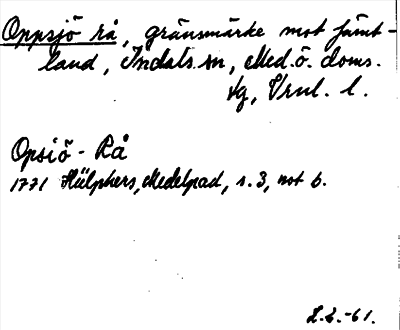 Oppsjö rå, gränsmärke mot Jämt-
land, Indals sn, Med.ö. doms.
Vg, Vrnl. l.
Opsiö - Rå
1771 Hülphers, Medelpad, s. 3, not b.
L.L.-61.